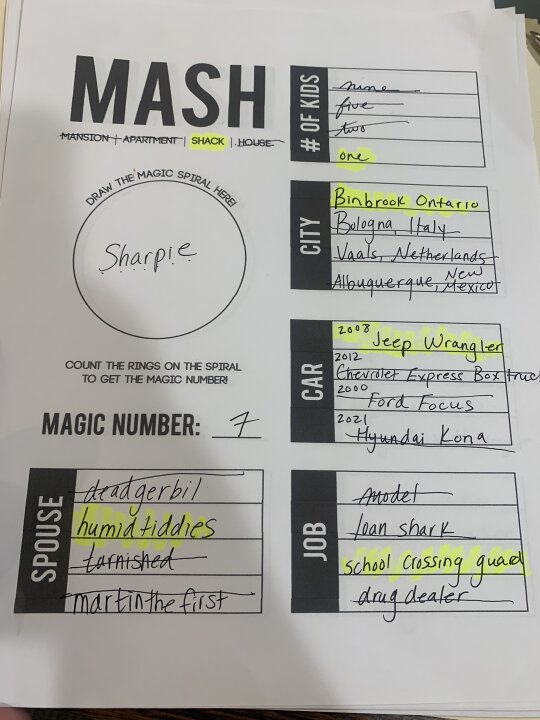 MASH
MANSION | APARTMENT | SHACK | HOUSE
DRAW THE MAGIC SPIRAL HERE!
Sharpie
COUNT THE RINGS ON THE SPIRAL
TO GET THE MAGIC NUMBER!
MAGIC NUMBER: 7
# OF KIDS
nine
five
two
one
CITY
Binbrook Ontario
Bologna, Italy
Vaals, Netherlands
Albuquerque, New Mexico
CAR
2008 Jeep Wrangler
2012 Chevrolet Express Box truck
2000 Ford Focus
2021 Hyundai Kona
SPOUSE
deadgerbil
humidtiddies
tarnished
martinthefirst
JOB
model
loan shark
school crossing guard
drug dealer